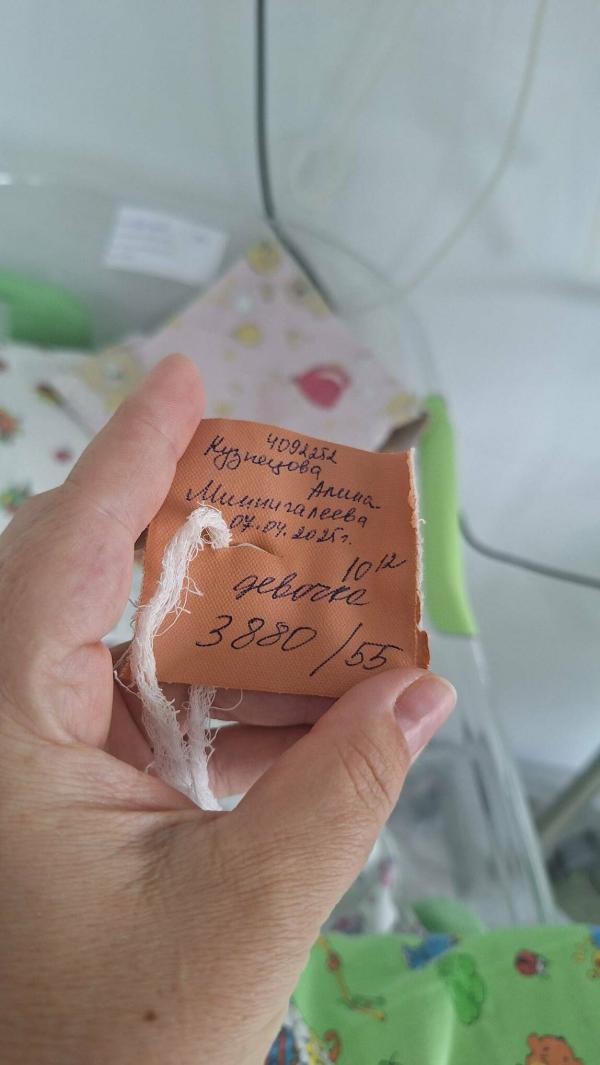 4092252
Кузнецова
Алина
Миннигалеева
07.04.2025г.
10 12
девочка
3880/55